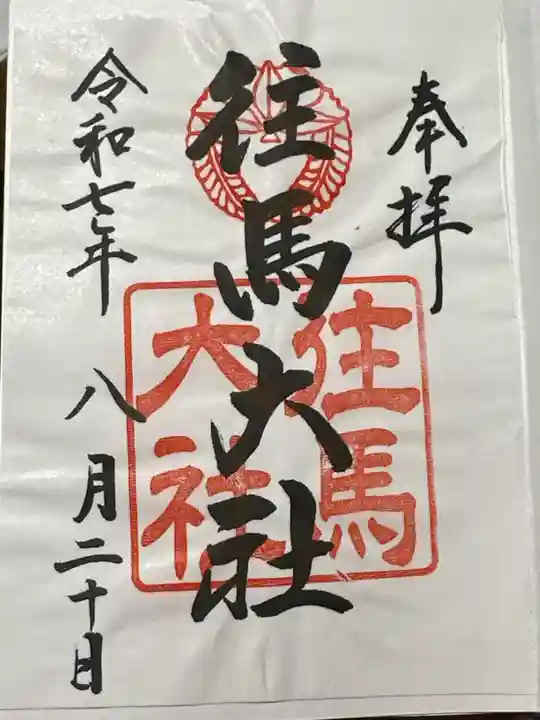 奉拝
往馬大社
往馬
大社
令和七年
八月二十日